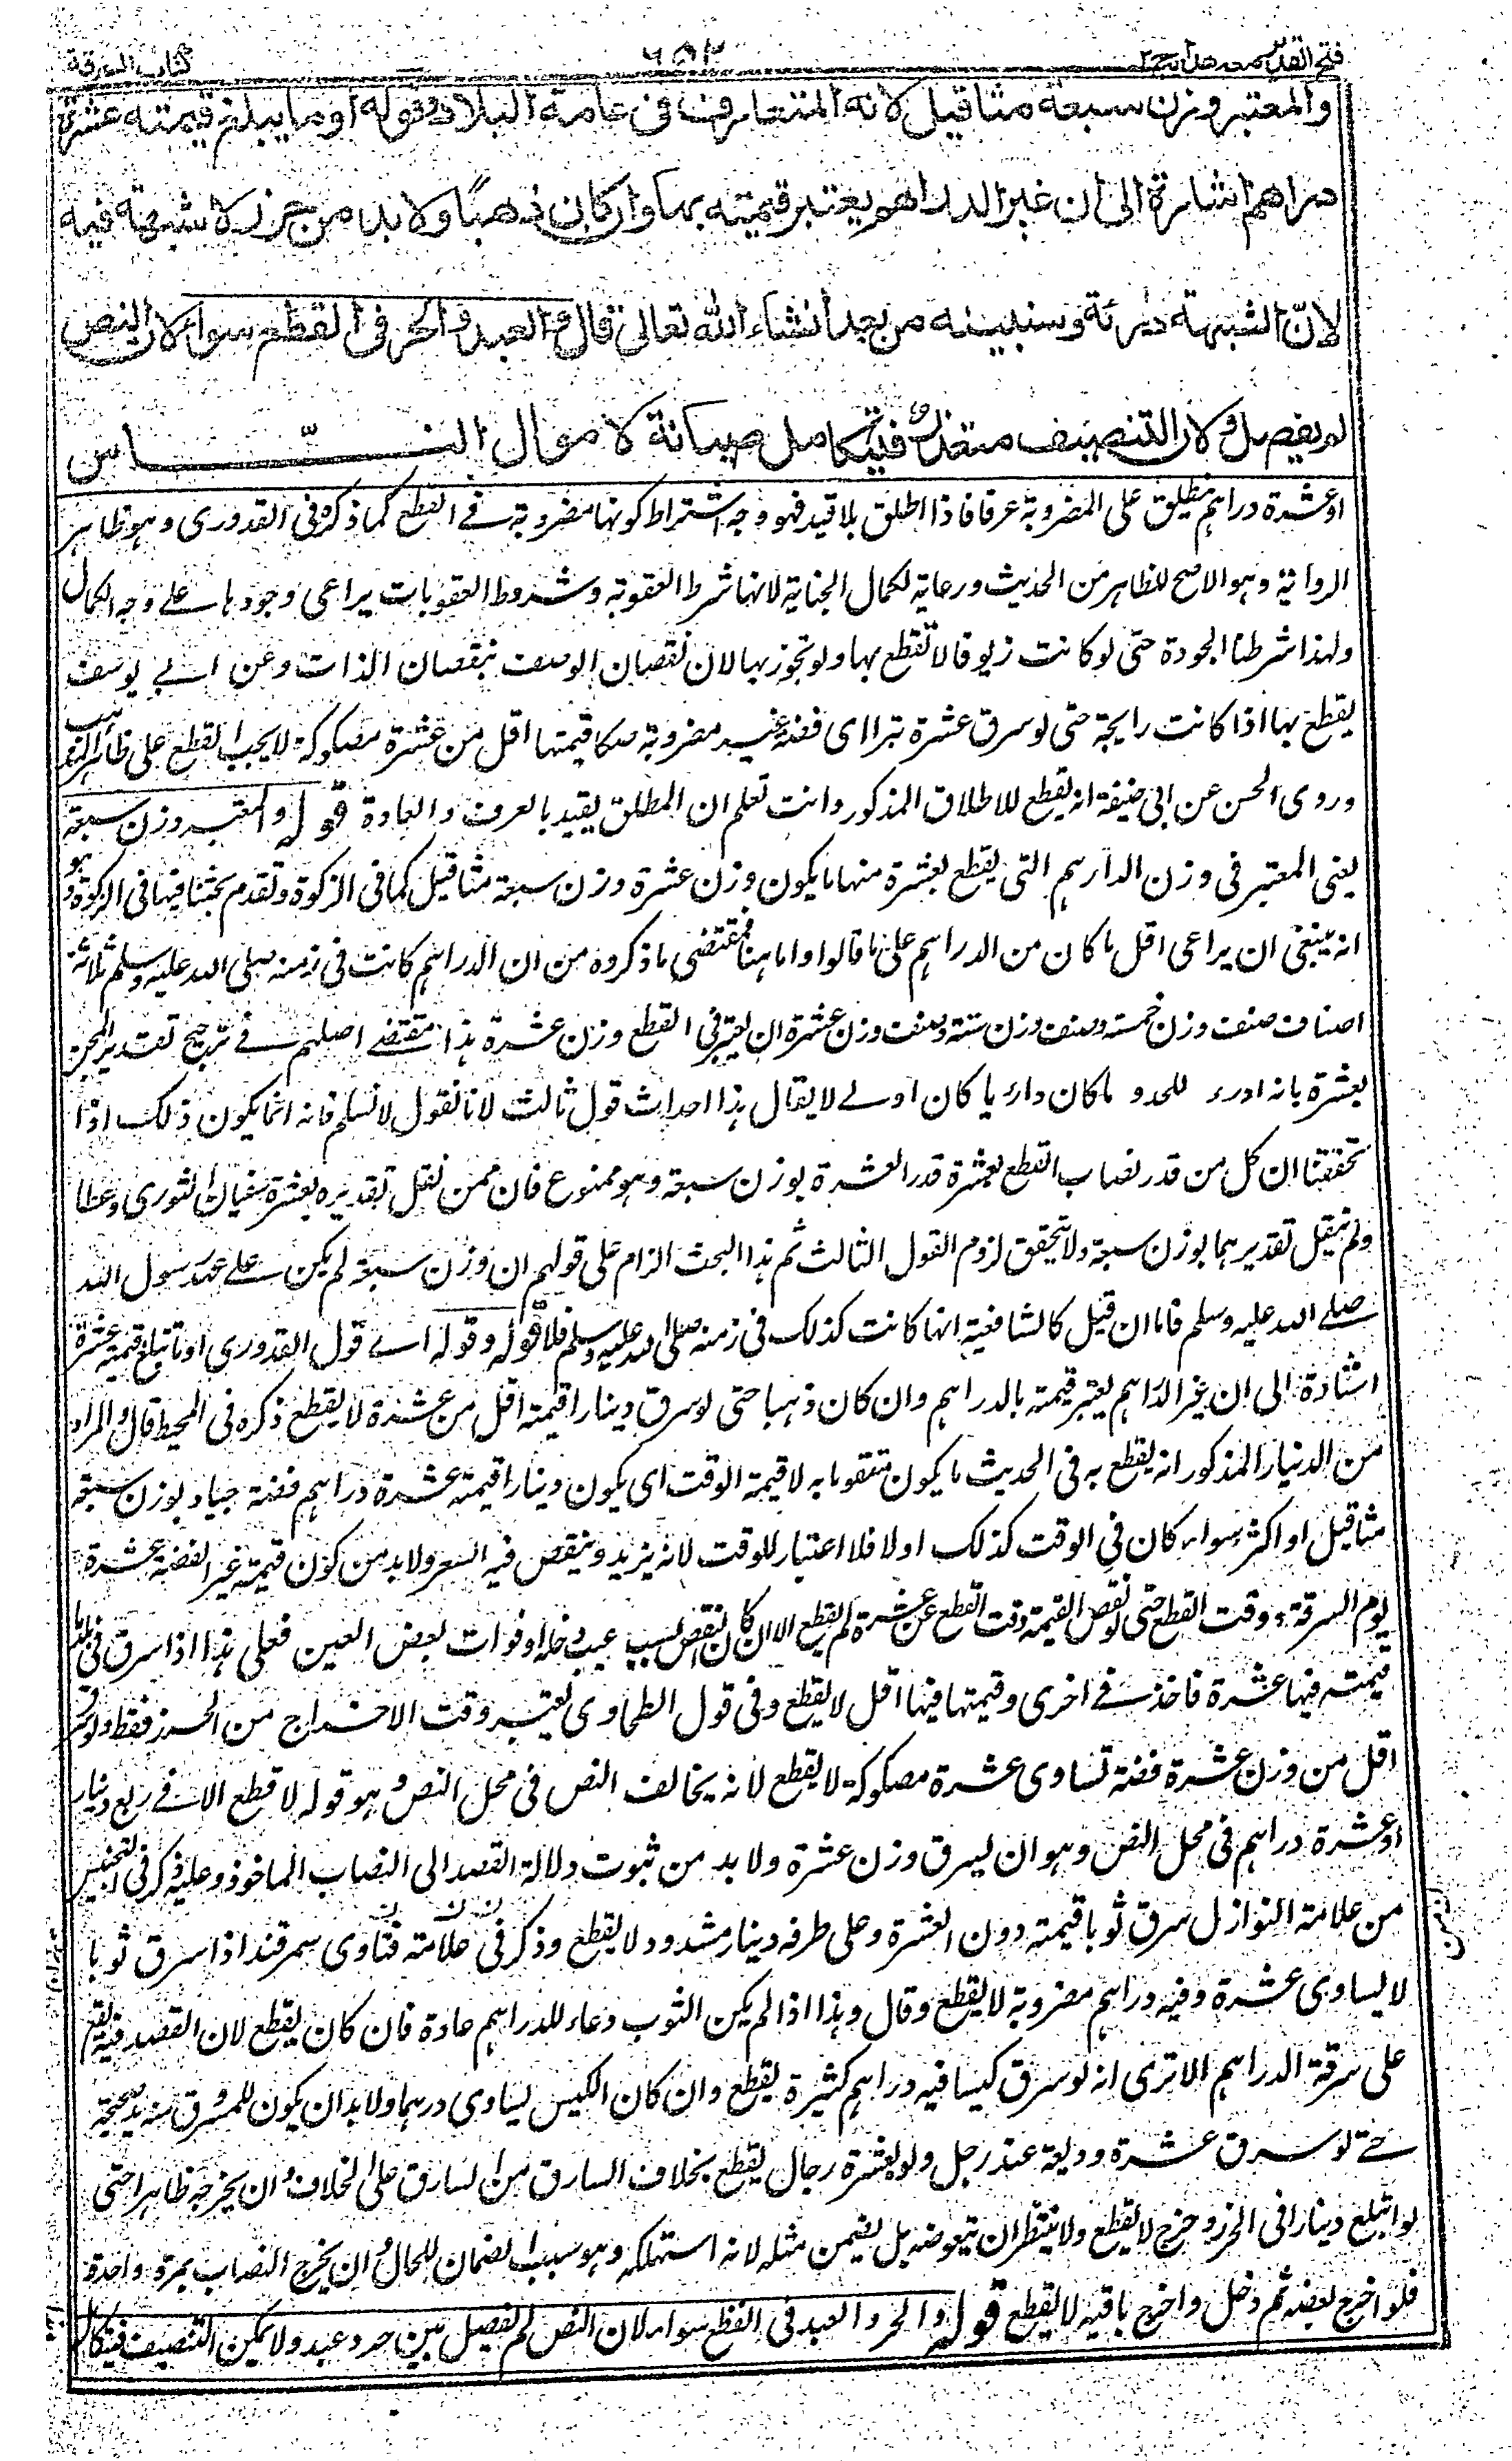 فتح القدير مع هداية ج ٢
٦٥٣
كتاب السرقة
والمعتبر وزن سبعة مثاقيل لانه المتعارف فى عامة البلاد وقوله او ما يبلغ قيمته عشرة
دراهم اشارة الى ان غير الدراهم يعتبر قيمته بها وان كان ذهبًا ولا بد من حرز لا شبهة فيه
لانّ الشبهة دارئة وسنبينه من بعد ان شاء الله تعالى قال والعبد والحر فى القطع سواء لان النص
لم يفصل ولان التنصيف متعذر فيتكامل صيانة لاموال النّاس
او عشرة دراهم يطلق على المضروبة عرفا فاذا اطلق بلا قيد فهو وجه اشتراط كونها مضروبة فے القطع كما ذكره فى القدورى وهو ظاهر
الرواية وهو الاصح للظاهر من الحديث ورعاية لكمال الجناية لانها شرط العقوبة وشروط العقوبات يراعى وجودها علے وجه الكمال
ولهذا شرطنا الجودة حتى لو كانت زيوفا لا تقطع بها ولو تجوز بها لان نقصان الوصف بنقصان الذات وعن ابے يوسف
يقطع بها اذا كانت رايجة حتى لو سرق عشرة تبرا اى فضة غير مضروبة صكا قيمتها اقل من عشرة مصكوكة لا يجب القطع على ظاهر المذهب
وروى الحسن عن ابى حنيفة انه يقطع للاطلاق المذكور وانت تعلم ان المطلق يقيد بالعرف والعادة قوله والمعتبر وزن سبعة
يعنى المعتبر فى وزن الدارهم التى يقطع بعشرة منها ما يكون وزن عشرة وزن سبعة مثاقيل كما فى الزكوة وتقدم بحثنا فيها فى الزكوة وهو
انه ينبغى ان يراعى اقل ما كان من الدراهم على ما قالوا واما هنا فمقتضى ما ذكروه من ان الدراهم كانت فى زمنه صلى الله عليه وسلم ثلاثة
اصناف صنف وزن خمسة وصنف وزن ستة وصنف وزن عشرة ان يعتبر فى القطع وزن عشرة هذا مقتضے اصلهم فے ترجيح تقدير المجن
بعشرة بانه ادرء للحد و ما كان دارءً يا كان اولے لا يقال هذا احداث قول ثالث لانا نقول لا نسلم فانه انما يكون ذلك اذا
تحققنا ان كل من قدر نصاب القطع بعشرة قدر العشرة بوزن سبعة وهو ممنوع فان ممن نقل تقديره بعشرة سفيان الثورى وعطا
ولم ينقل تقديرهما بوزن سبعة ولا تحقق لزوم القول الثالث ثم هذا البحث الزام على قولهم ان وزن سبعة لم يكن علے عهد رسول الله
صلے الله عليه وسلم فاما ان قيل كالشافعية انها كانت كذلك فى زمنه صلى الله عليه وسلم فلا قوله وقوله اے قول القدورى او ما تبلغ قيمته عشرة
اشارة الى ان غير الدراهم يعتبر قيمته بالدراهم وان كان ذهبا حتى لو سرق دينارا قيمته اقل من عشرة لا يقطع ذكره فى المحيط قال والمراد
من الدينار المذكور انه يقطع به فى الحديث ما يكون متقوما به لا قيمة الوقت اى يكون دينارا قيمته عشرة دراهم فضة جياد بوزن سبعة
مثاقيل او اكثر سواء كان فى الوقت كذلك اولا فلا اعتبار للوقت لانه يزيد وينقص فيه السعر ولا بد من كون قيمة غير الفضة عشرة
يوم السرقة و وقت القطع حتى لو نقص القيمة وقت القطع عن عشرة لم يقطع الا ان كان النقص بسبب عيب دخله او فوات بعض العين فعلى هذا اذا سرق فى بلد
قيمته فيها عشرة فاخذ فے اخرى وقيمتها فيها اقل لا يقطع وفى قول الطحاوى يعتبر وقت الاخراج من الحرز فقط ولو سرق
اقل من وزن عشرة فضة تساوى عشرة مصكوكة لا يقطع لانه يخالف النص فى محل النص وهو قوله لا قطع الا فے ربع دينار
او عشرة دراهم فى محل النص وهو ان يسرق وزن عشرة ولا بد من ثبوت دلالة القصد الى النصاب الماخوذ وعليه ذكر فى التجنيس
من علامة النوازل سرق ثوبا قيمته دون العشرة وعلى طرفه دينار مشدود لا يقطع وذكر فى علامة فتاوى سمرقند اذا سرق ثوبا
لا يساوى عشرة وفيه دراهم مضروبة لا يقطع وقال وهذا اذا لم يكن الثوب دعاء للدراهم عادة فان كان يقطع لان القصد فيه يقع
على سرقة الدراهم الا ترى انه لو سرق كيسا فيه دراهم كثيرة يقطع وان كان الكيس يساوى درهما ولا بد ان يكون للمسروق منه يد صحيحة
حتے لو سرق عشرة وديعة عند رجل ولو لعشرة رجال يقطع بخلاف السارق من السارق على الخلاف و ان يخرجه ظاهرا حتى
لو ابتلع دينارا فى الحرز وخرج لا يقطع ولا ينتظر ان يتغوضه بل يضمن مثله لانه استهلكه وهو سبب الضمان للحال و ان يخرج النصاب بمرة واحدة
فلو اخرج بعضه ثم دخل واخرج باقيه لا يقطع قوله والحر والعبد فى القطع سواء لان النص لم يفصل بين حر وعبد ولا يمكن التنصيف فيتكامل